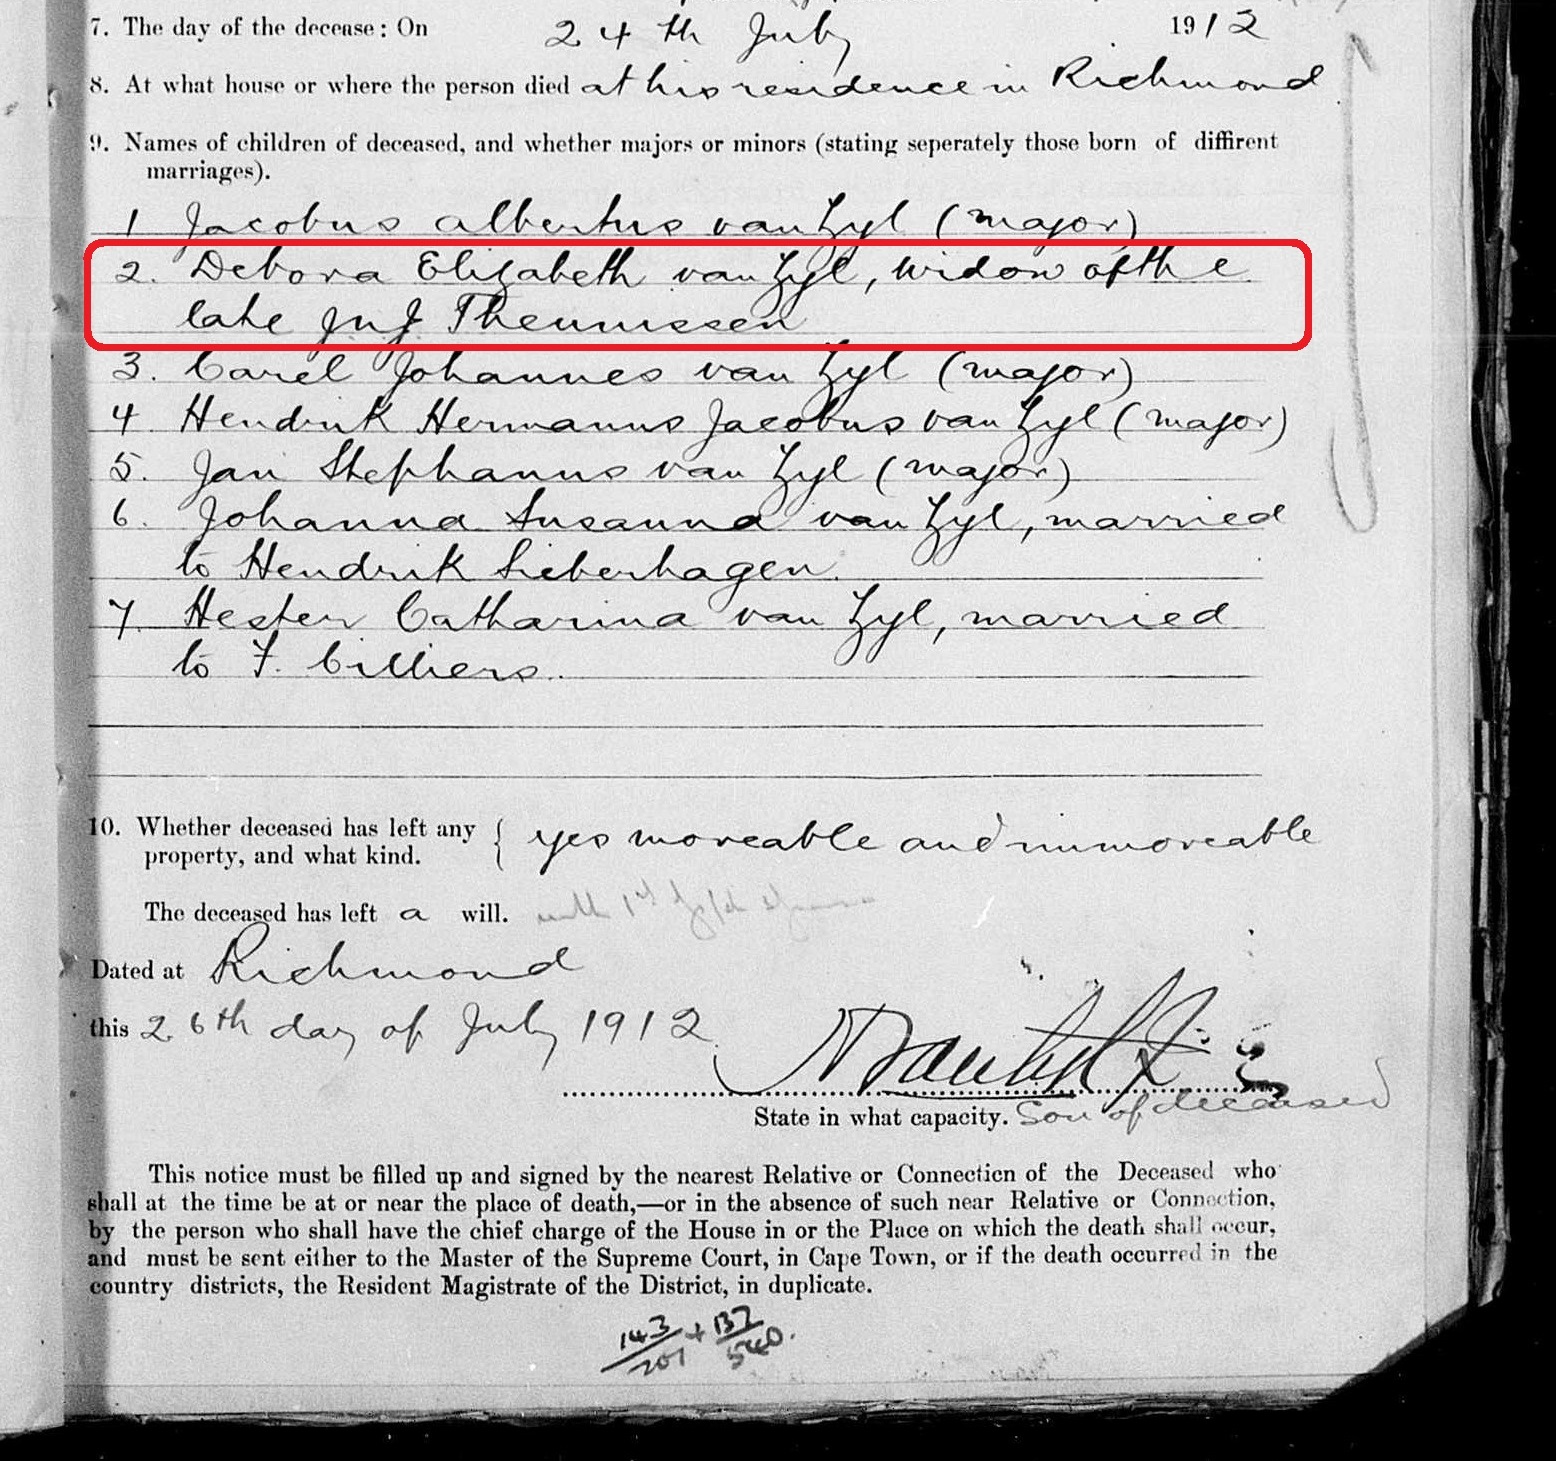 7. The day of the decease: On 24th July 1912
8. At what house or where the person died at his residence in Richmond
9. Names of children of deceased, and whether majors or minors (stating seperately those born of diffirent
marriages).
1 Jacobus Albertus van Zyl (major)
2. Debora Elizabeth van Zyl, widow of the
late J N J Theunissen
3. Carel Johannes van Zyl (major)
4. Hendrik Hermanus Jacobus van Zyl (major)
5. Jan Stephanus van Zyl (major)
6. Johanna Susanna van Zyl, married
to Hendrik Lieberhagen.
7. Hester Catharina van Zyl, married
to F. Cilliers.
10. Whether deceased has left any { yes moveable and immoveable
property, and what kind.
The deceased has left a will.
Dated at Richmond
this 26th day of July 1912.
State in what capacity. Son of deceased
This notice must be filled up and signed by the nearest Relative or Connecticn of the Deceased who
shall at the time be at or near the place of death,—or in the absence of such near Relative or Connection,
by the person who shall have the chief charge of the House in or the Place on which the death shall occur,
and must be sent either to the Master of the Supreme Court, in Cape Town, or if the death occurred in the
country districts, the Resident Magistrate of the District, in duplicate.
143/201 + 137/540.